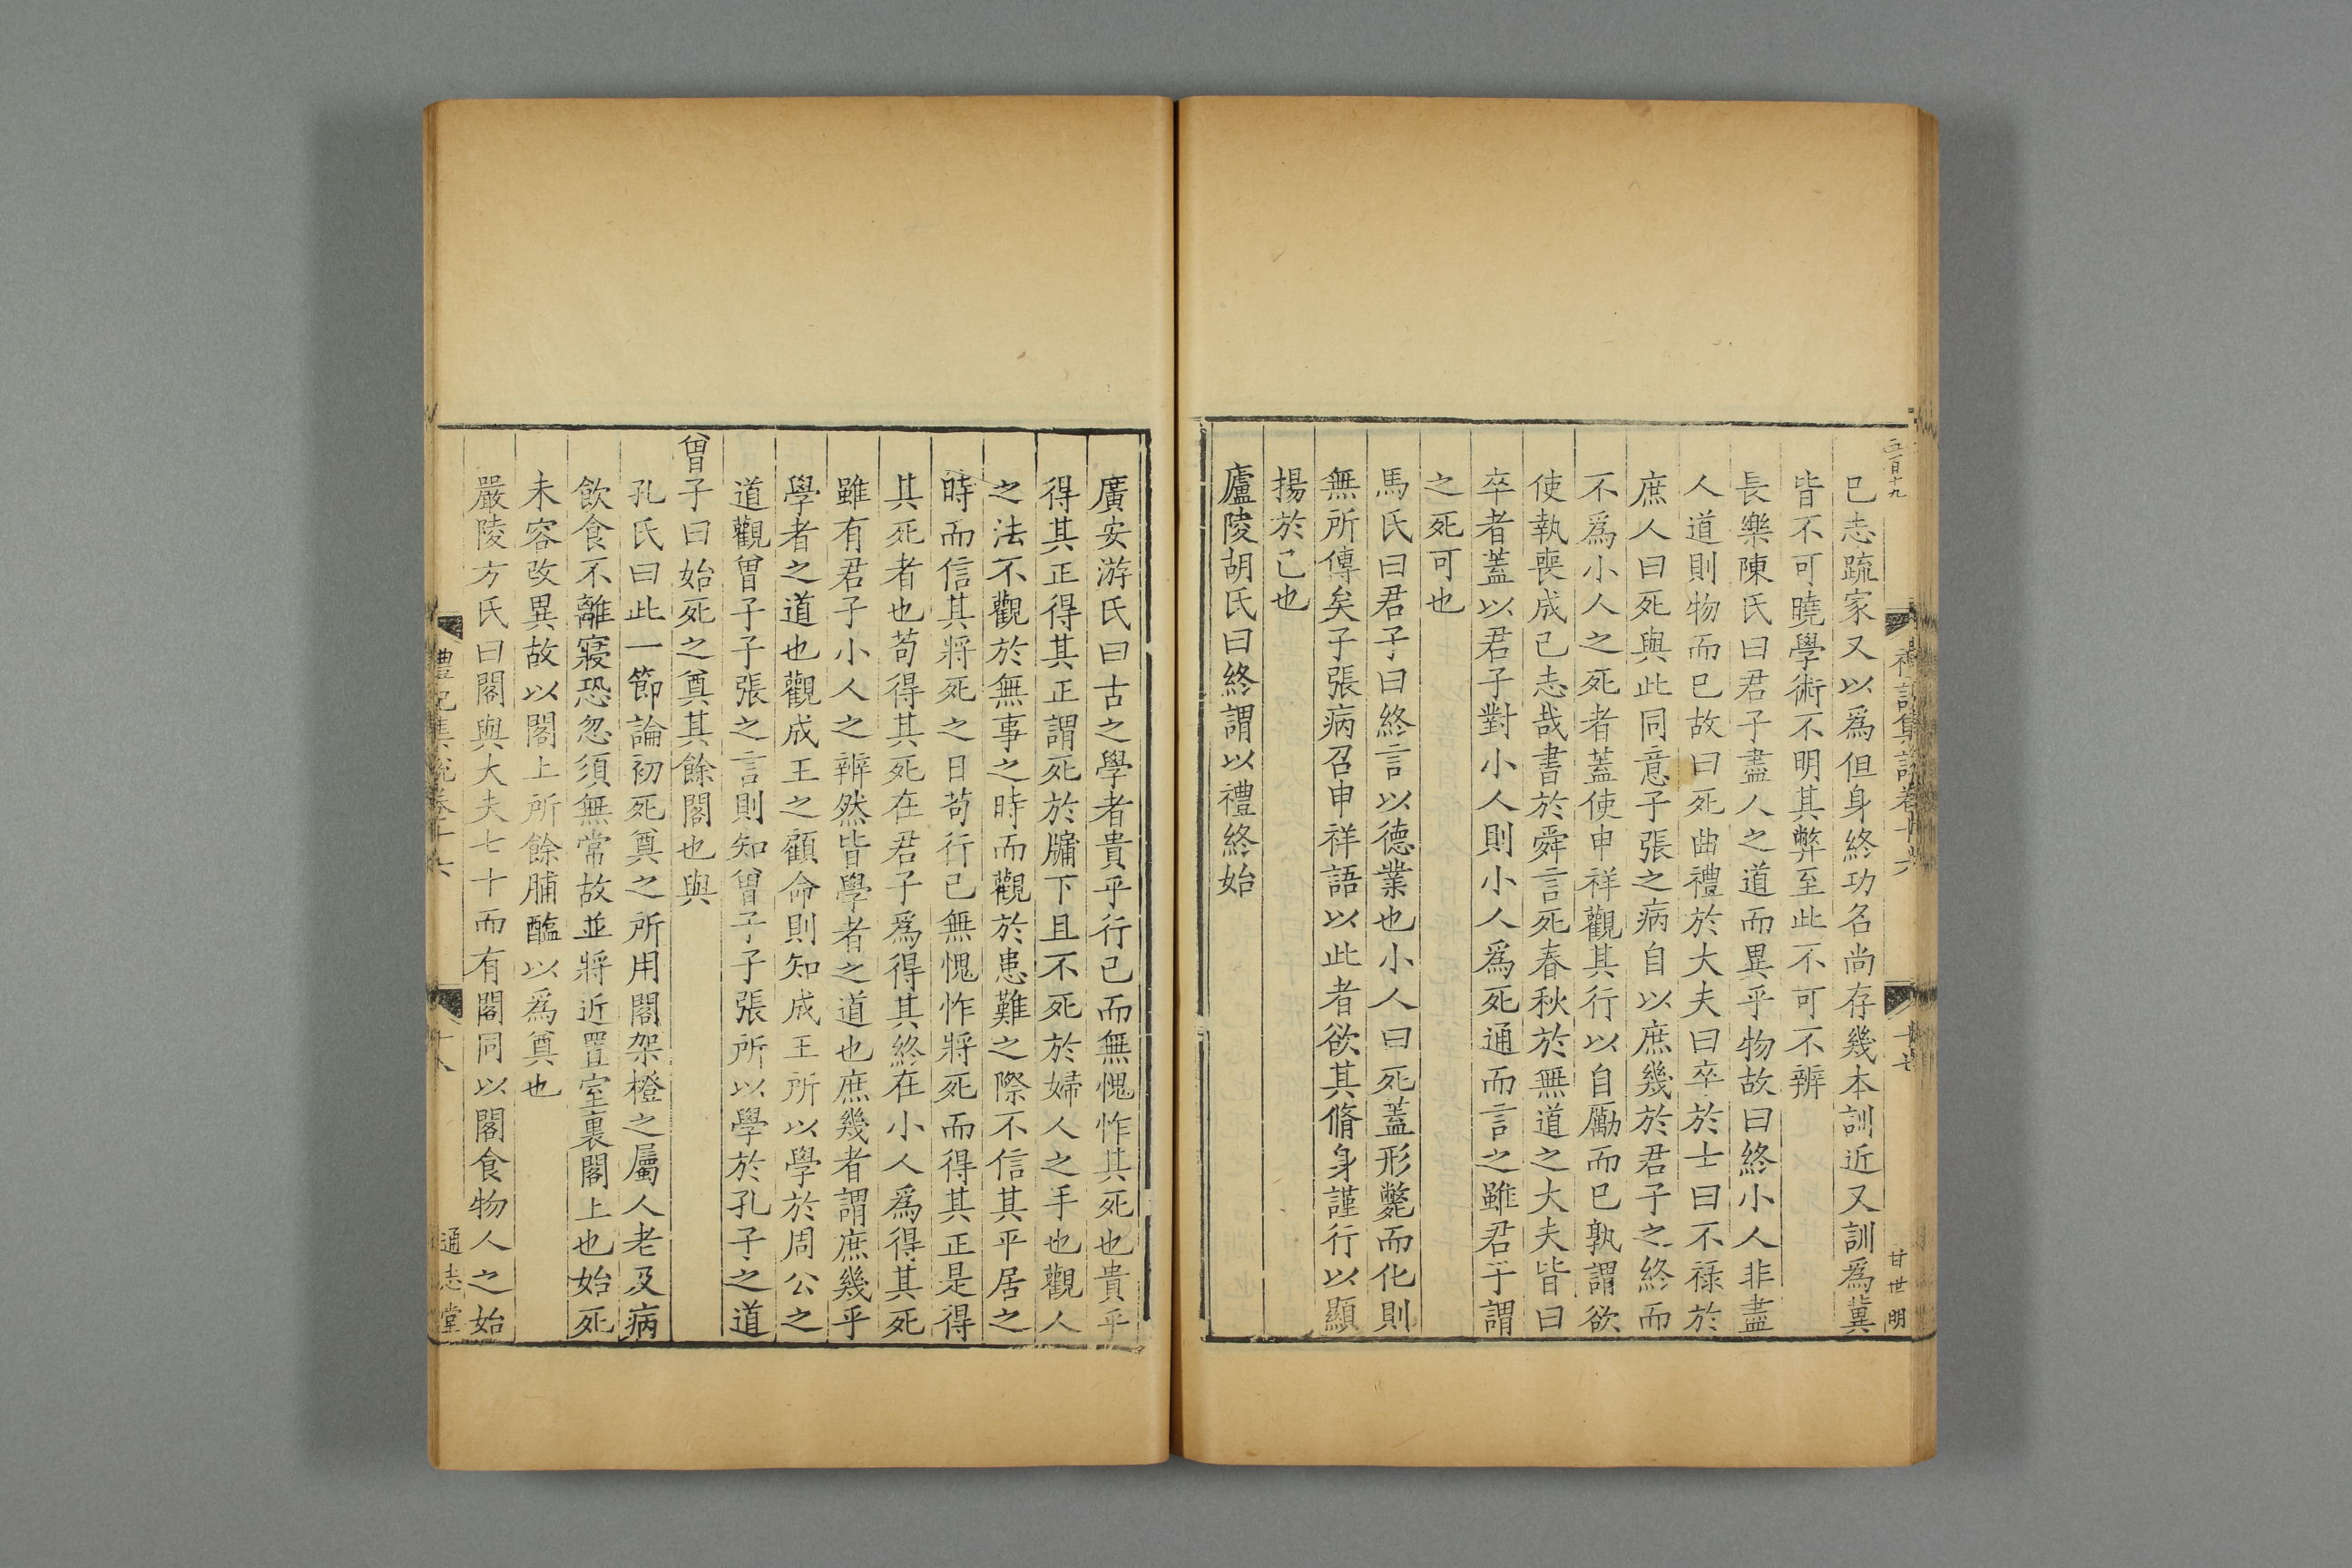 五百十九
禮記集說卷十六
十七
甘世明
已志疏家又以爲但身終功名尚存幾本訓近又訓爲冀
皆不可曉學術不明其弊至此不可不辨
長樂陳氏曰君子盡人之道而異乎物故曰終小人非盡
人道則物而已故曰死曲禮於大夫曰卒於士曰不祿於
庶人曰死與此同意子張之病自以庶幾於君子之終而
不爲小人之死者蓋使申祥觀其行以自勵而已孰謂欲
使執喪成己志哉書於舜言死春秋於無道之大夫皆曰
卒者蓋以君子對小人則小人爲死通而言之雖君子謂
之死可也
馬氏曰君子曰終言以德業也小人曰死蓋形斃而化則
無所傳矣子張病召申祥語以此者欲其脩身謹行以顯
揚於己也
廬陵胡氏曰終謂以禮終始
廣安游氏曰古之學者貴乎行己而無愧怍其死也貴乎
得其正得其正謂死於牖下且不死於婦人之手也觀人
之法不觀於無事之時而觀於患難之際不信其平居之
時而信其將死之日苟行己無愧怍將死而得其正是得
其死者也苟得其死在君子爲得其終在小人爲得其死
雖有君子小人之辨然皆學者之道也庶幾者謂庶幾乎
學者之道也觀成王之顧命則知成王所以學於周公之
道觀曾子子張之言則知曾子子張所以學於孔子之道
曾子曰始死之奠其餘閣也與
孔氏曰此一節論初死奠之所用閣架橙之屬人老及病
飲食不離寢恐忽須無常故並將近置室裏閣上也始死
未容改異故以閣上所餘脯醢以爲奠也
嚴陵方氏曰閣與大夫七十而有閣同以閣食物人之始
禮記集說卷十六
十八
通志堂